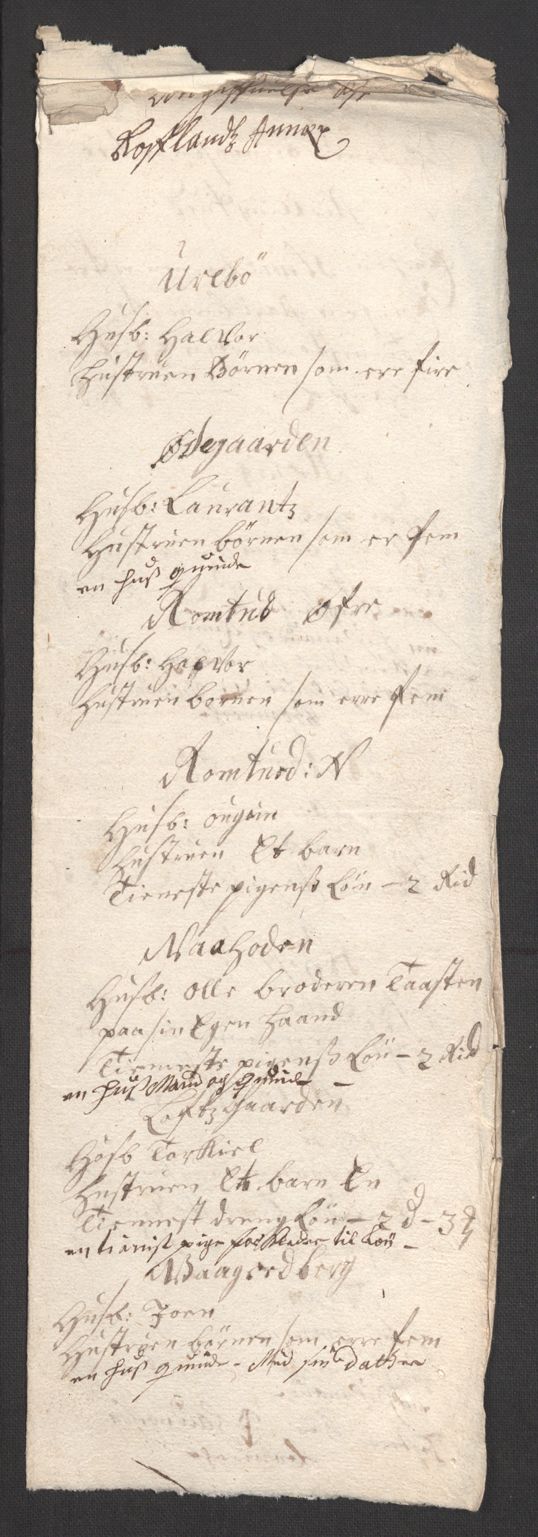 Annex
Urebö
Husb: Halvor
Hustruen Börnen som ere fire
Ødegaarden
Husb: Laurantz
Hustruen börnen som er fem
en huß quinde
Romtud Øfre
Husb: Halvor
Hustruen bornen som erre fem
Romtued: N
Husb: ougun
Hustruen Et barn
Tieneste pigenß Lön – 2 Rid
Naahoden
Husb: Olle broderen Taasten
paa sin Egen haand
Tieneste pigenß Lön – 2 Rid
en huß Mand og quinde –
Loftz Gaarden
Hosb Torkiel
Hustruen Et barn En
Tiennest dreng Lön – 2 d – 3
en tienist pige for Kleder til Lön –
Husb: Joen
Hustruen börnen som erre fem
en huß quinde – Med sin dather